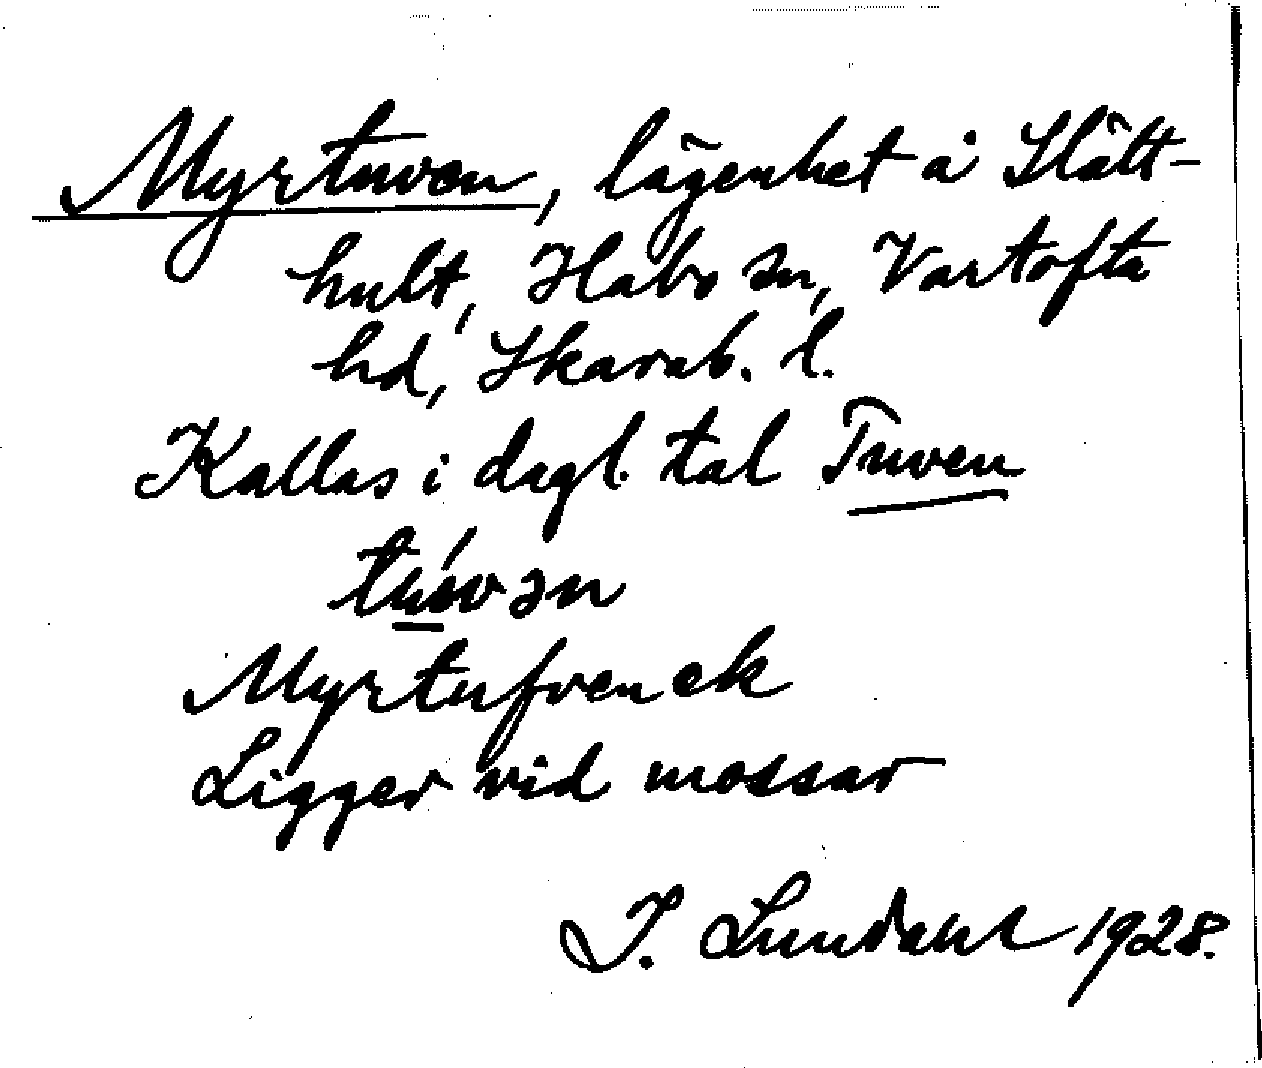 Myrtuven, lägenhet å Slätt-
hult, Habo sn, Vartofta
hd, Skarab. l.
Kallas i dagl. tal Tuven
túvən
Myrtufven ek
Ligger vid mossar
I. Lundahl 1928.